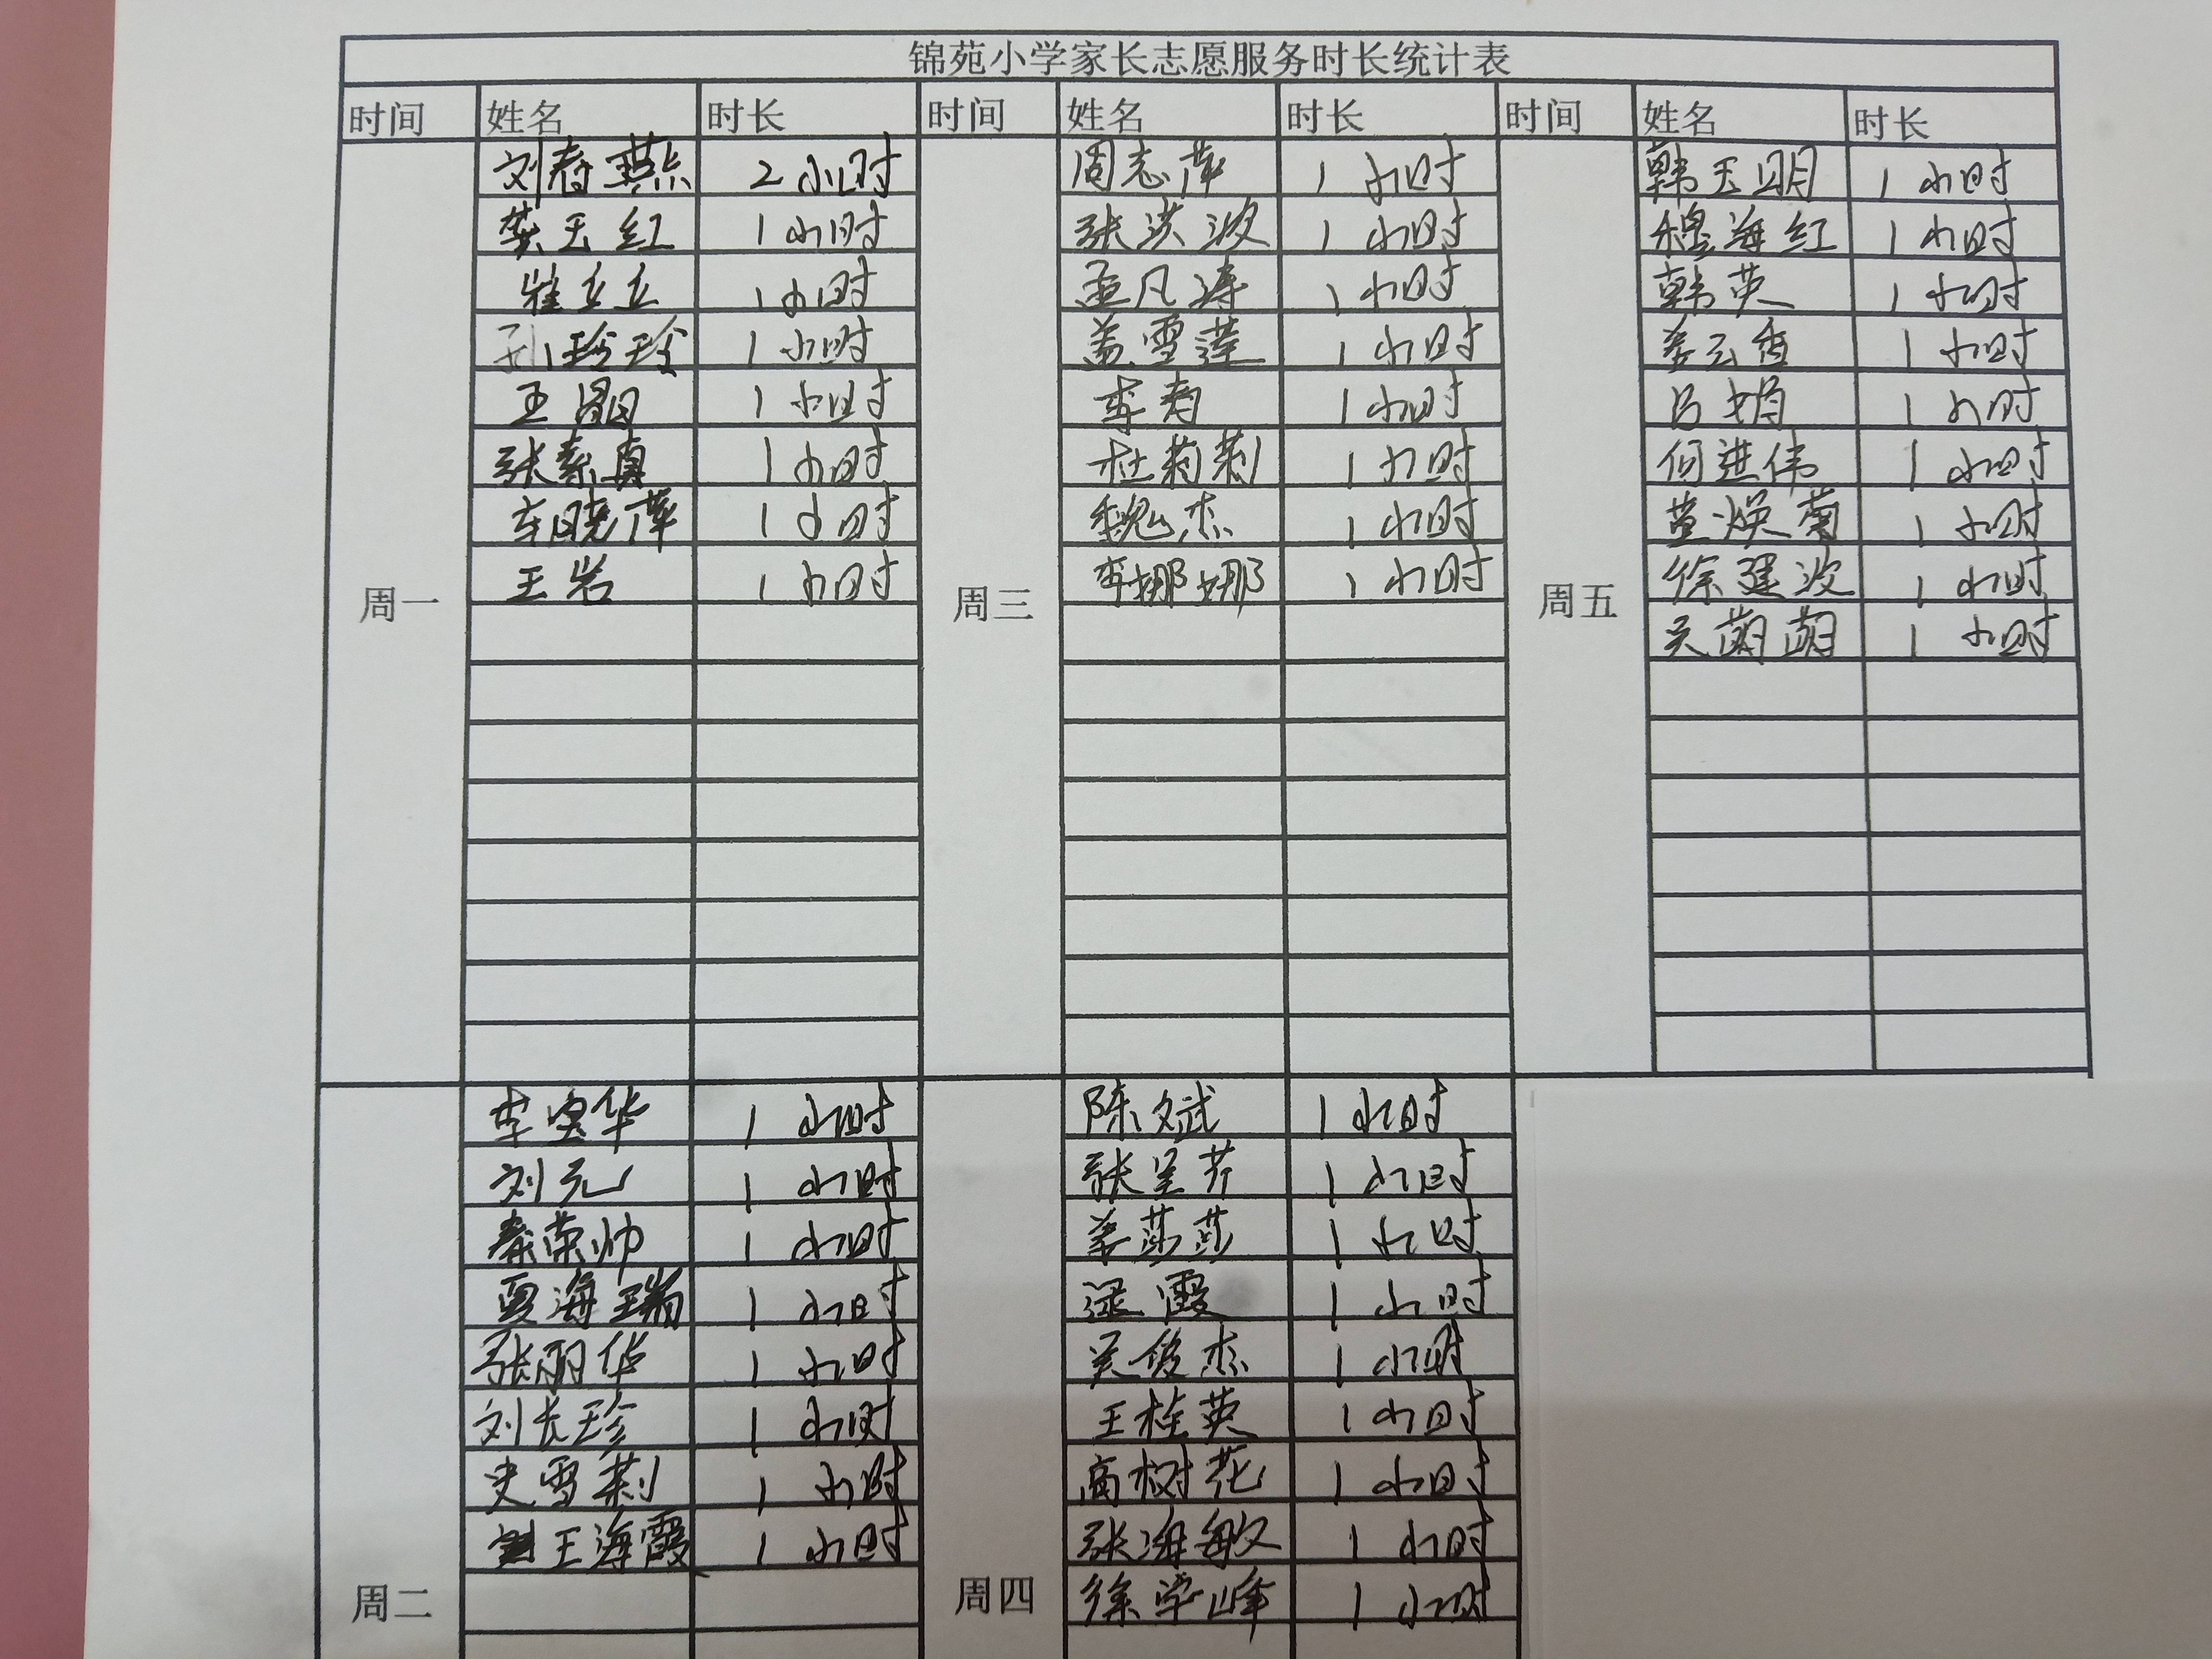 锦苑小学家长志愿服务时长统计表
时间 姓名 时长 时间 姓名 时长 时间 姓名 时长
周一
刘春燕 2小时
娄天红 1小时
崔立立 1小时
孙玲玲 1小时
王晶 1小时
张素真 1小时
车晓萍 1小时
王岩 1小时
周三
周志萍 1小时
张洪波 1小时
孟凡涛 1小时
盖雪莲 1小时
李寿 1小时
杜莉莉 1小时
魏杰 1小时
李娜娜 1小时
周五
韩玉明 1小时
穆海红 1小时
韩英 1小时
姜云香 1小时
吕娟 1小时
何进伟 1小时
董焕菊 1小时
徐建波 1小时
吴萌萌 1小时
周二
李宝华 1小时
刘元 1小时
秦荣帅 1小时
夏海瑞 1小时
张丽华 1小时
刘长珍 1小时
史雪莉 1小时
王海霞 1小时
周四
陈斌 1小时
张呈芹 1小时
姜莎莎 1小时
逯霞 1小时
吴俊杰 1小时
王桂英 1小时
高树花 1小时
张海敏 1小时
徐学峰 1小时